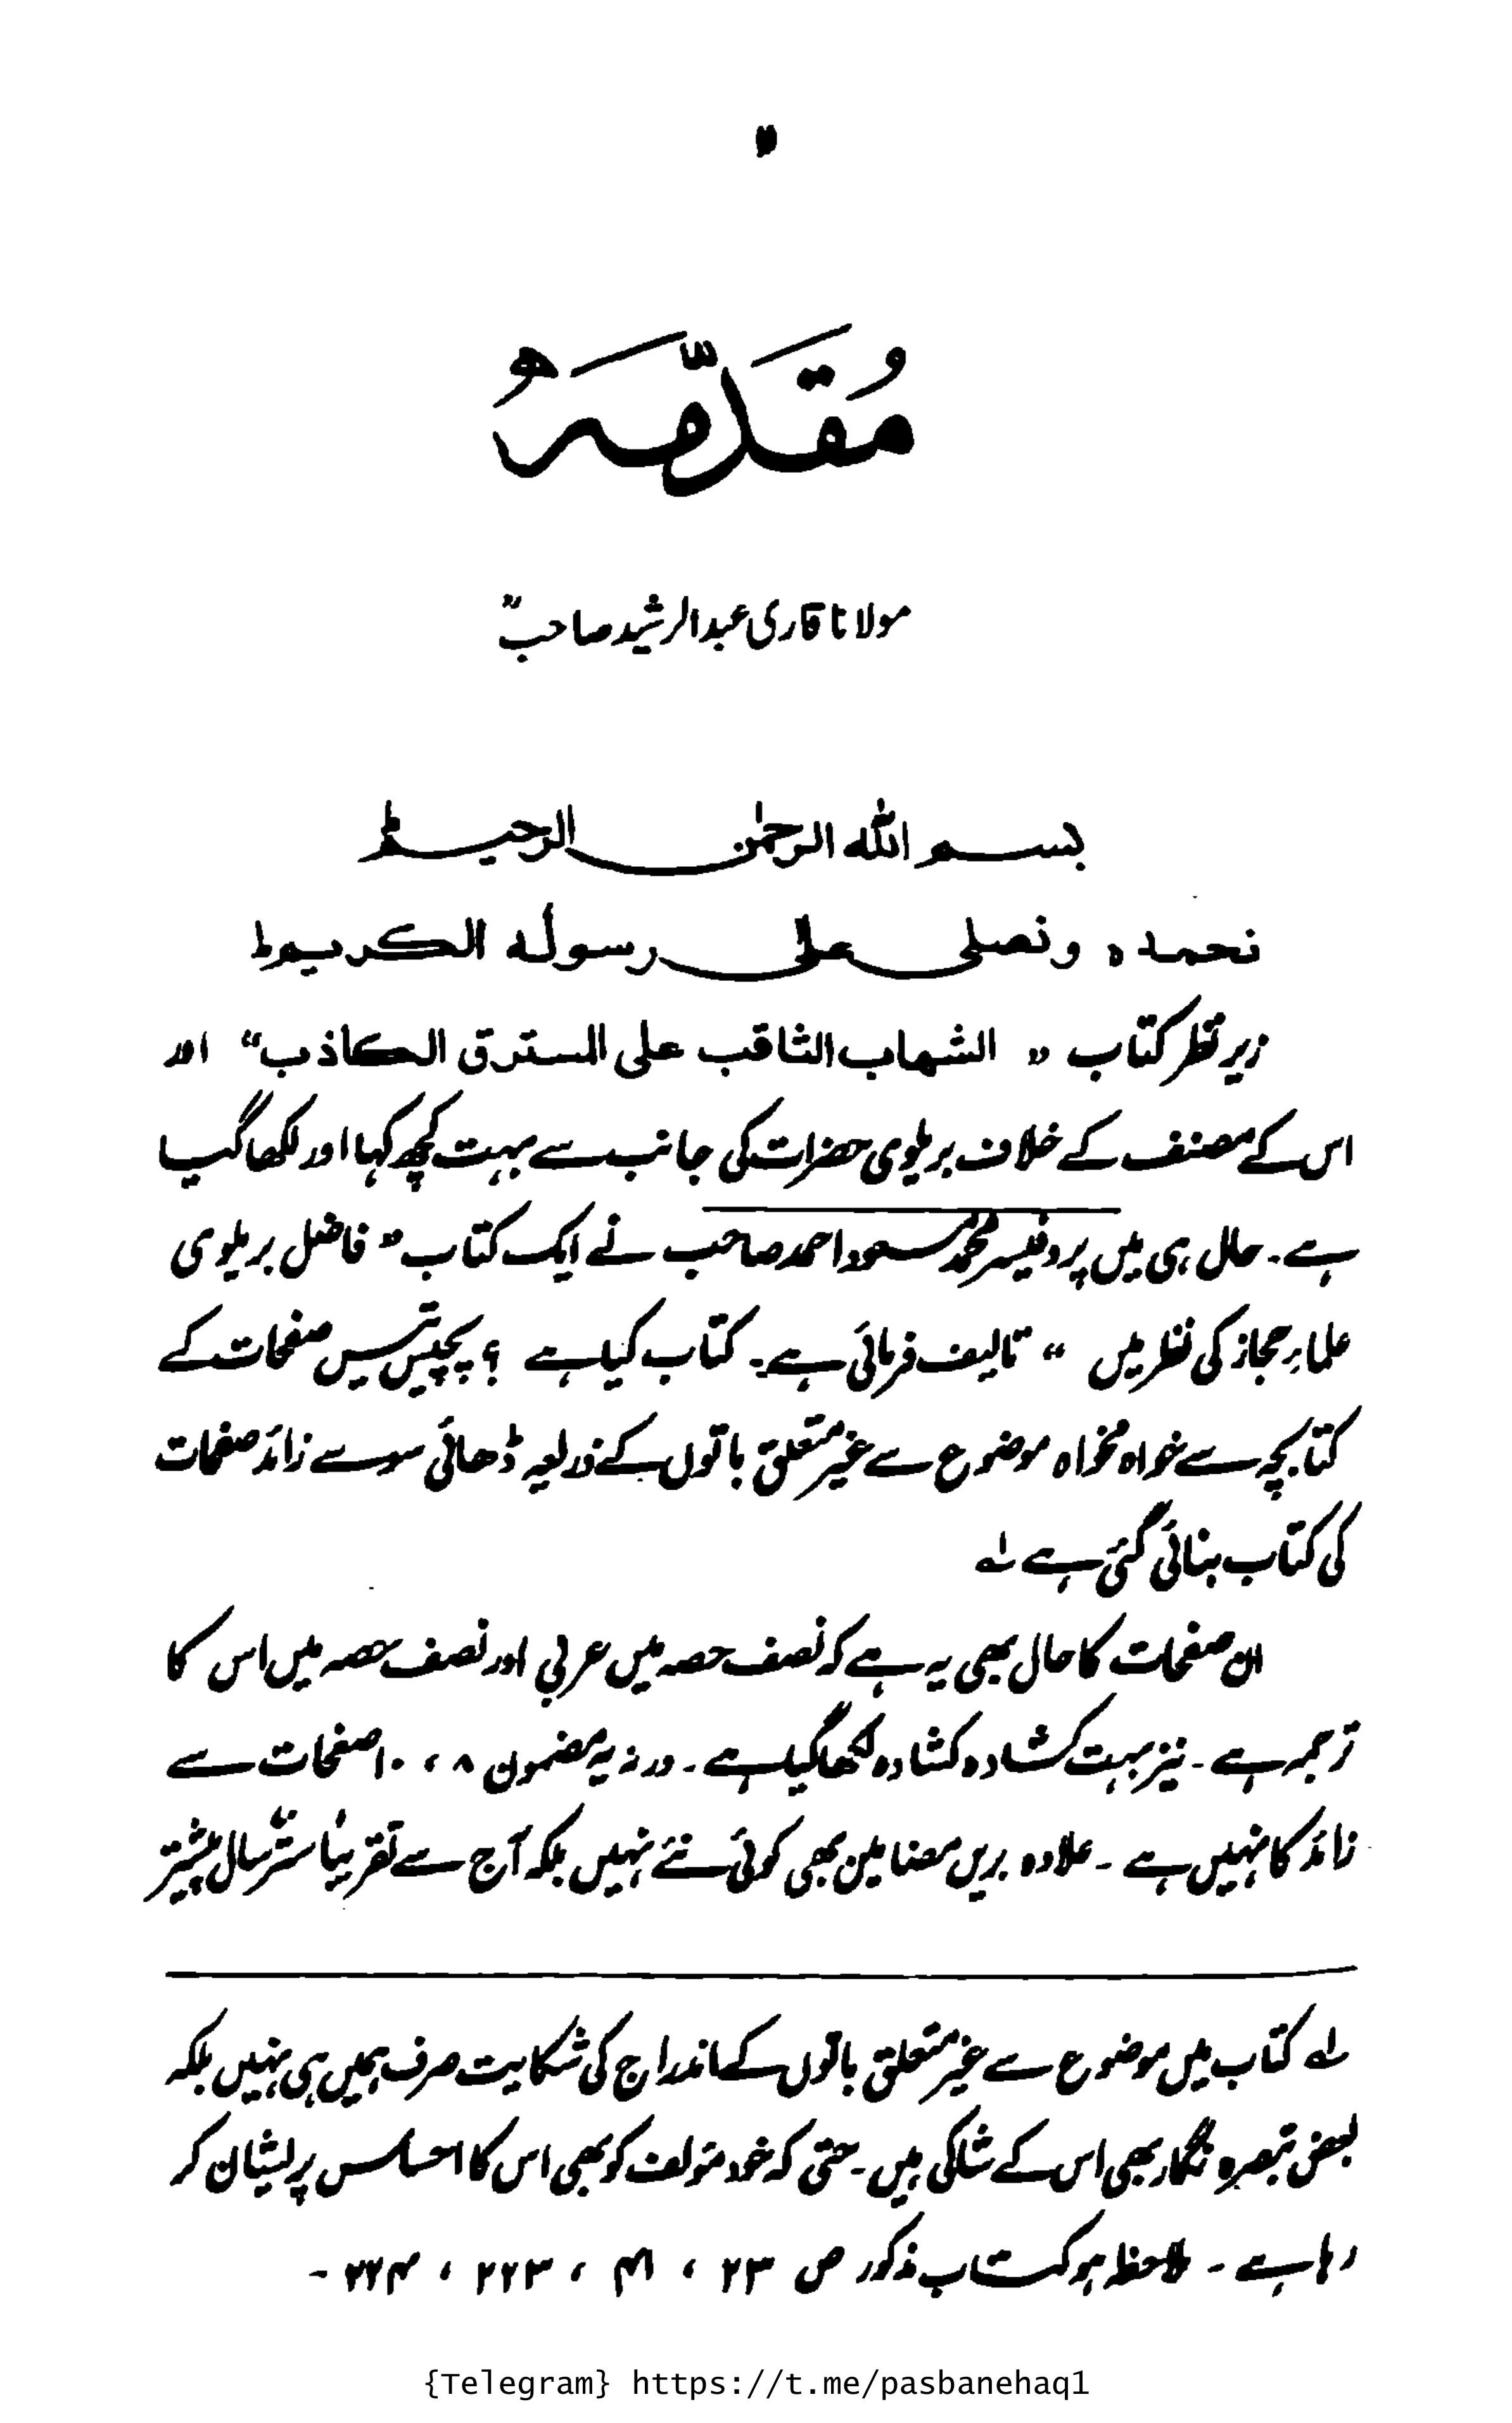 مُقَدِّمَہ
مولانا قاری عبدالرشید صاحبؒ
بسم اللہ الرحمٰن الرحیم ط
نحمدہ ونصلی علی رسولہ الکریم ط
زیر نظر کتاب " الشہاب الثاقب علی المسترق الکاذب" اور
اس کے مصنف کے خلاف بریلوی حضرات کی جانب سے بہت کچھ کہا اور لکھا گیا
ہے۔ حال ہی میں پروفیسر محمد مسعود احمد صاحب نے ایک کتاب "فاضل بریلوی
علماءِ حجاز کی نظر میں " تالیف فرمائی ہے۔ کتاب کیا ہے ؟ پچیس تیس صفحات کے
کتابچہ سے خواہ مخواہ موضوع سے غیر متعلق باتوں کے ذریعہ ڈھائی سو سے زائد صفحات
کی کتاب بنائی گئی ہے لہ
ان صفحات کا حال بھی یہ ہے کہ نصف حصہ میں عربی اور نصف حصہ میں اس کا
ترجمہ ہے۔ نیز بہت کشادہ کشادہ لکھا گیا ہے۔ ورنہ یہ مضمون ۸ ، ۱۰ صفحات سے
زائد کا نہیں ہے ۔ علاوہ بریں مضامین بھی کوئی نئے نہیں بلکہ آج سے تقریباً ستّر سال پیشتر
لہ کتاب میں موضوع سے غیر متعلق باتوں کے اندراج کی شکایت صرف ہمیں ہی نہیں بلکہ
بعض تبصرہ نگار بھی اس کے شاکی ہیں۔ حتی کہ خود مؤلف کو بھی اس کا احساس پریشان کر
رہا ہے ۔ ملاحظہ ہو کتاب مذکور ص ۲۳ ، ، ۲۲۳ ، ۲۲۴ ۔
{Telegram} https://t.me/pasbanehaq1